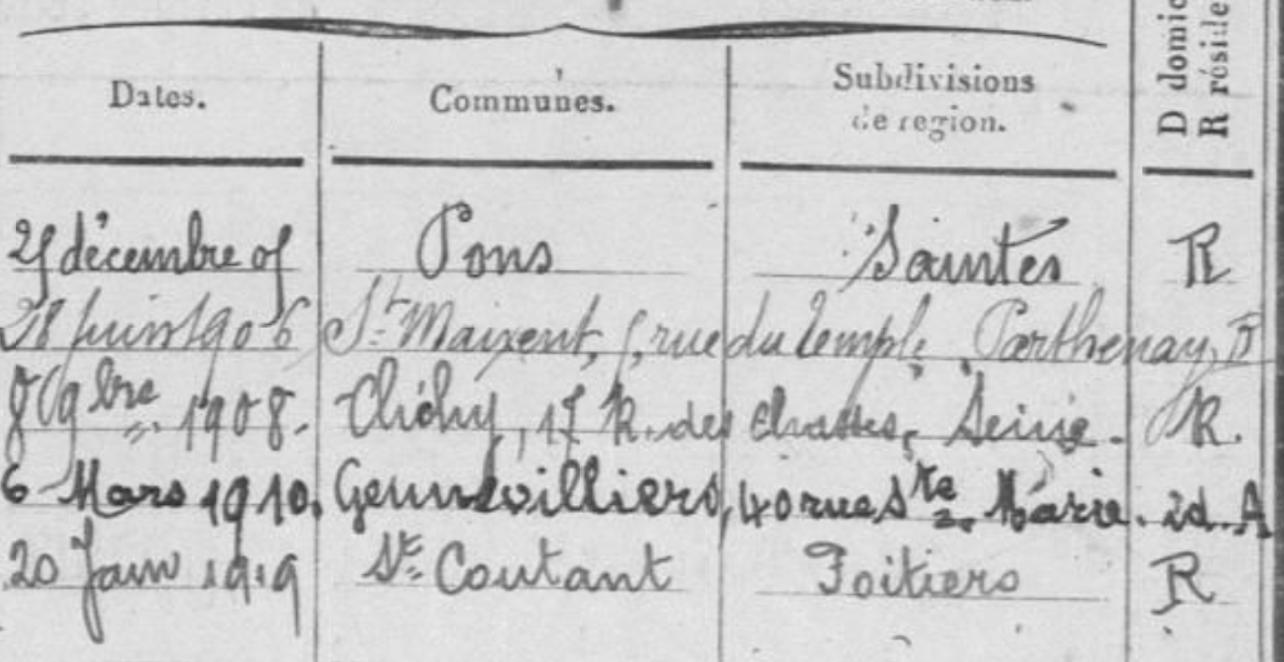 D domic
R réside
Dates. Communes. Subdivisions
de region.
25 décembre 05 Pons Saintes R
28 juin 1906 St. Maixent, 5, rue du temple, Parthenay, R
8 9bre 1908. Clichy, 17 R. des Seine. R.
6 Mars 1910. Gennevilliers, 40 rue Ste Marie. id. A
20 Janv 1919 St Coutant Poitiers R